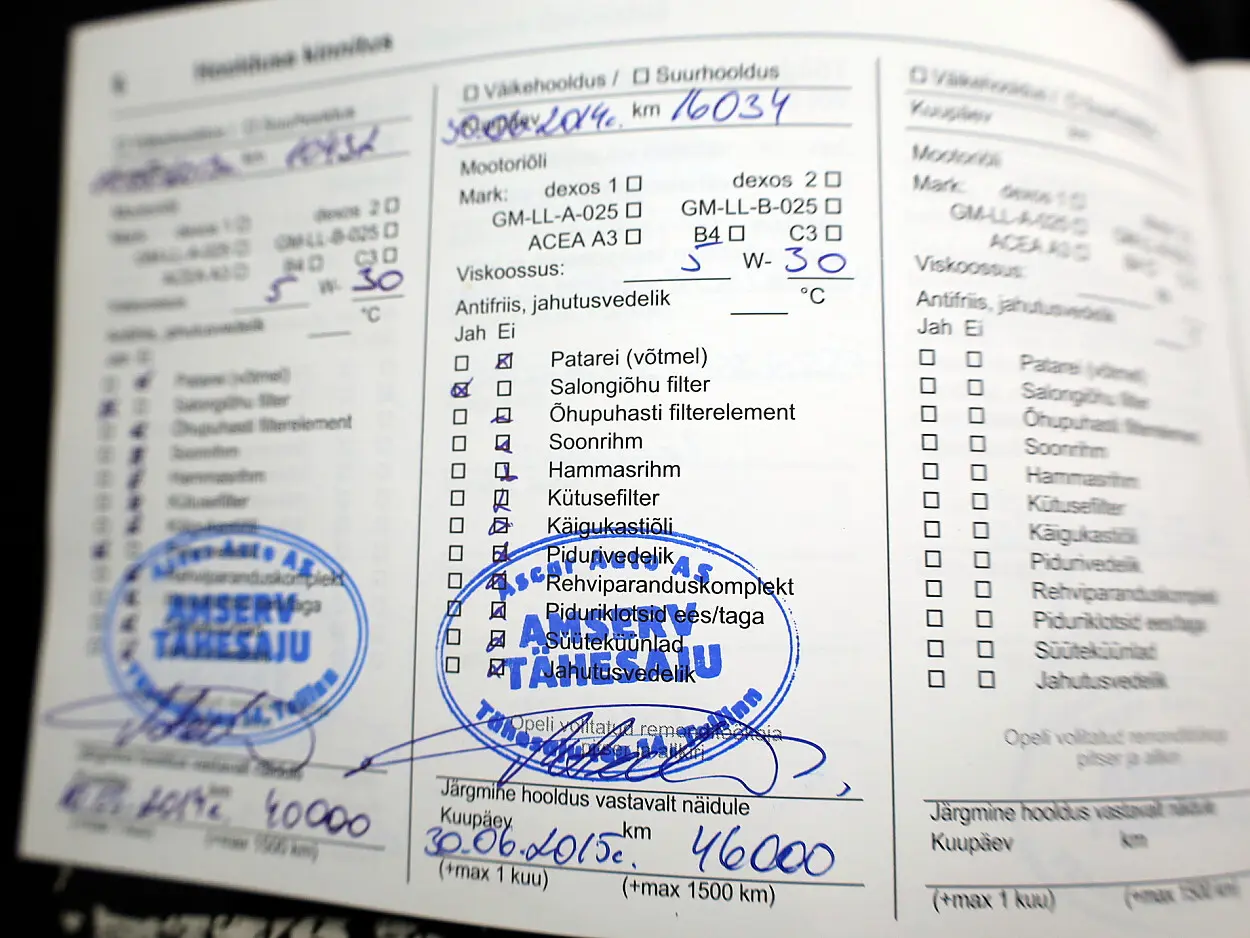 Hoolduse kinnitus
10432
Mootoriõli
Mark: dexos 1 dexos 2
GM-LL-A-025 GM-LL-B-025
ACEA A3 B4 C3
5 W- 30
Antifriis, jahutusvedelik °C
Patarei (võtmel)
Salongiõhu filter
Õhupuhasti filterelement
Soonrihm
Hammasrihm
Kütusefilter
Rehviparanduskomplekt
Ascar Auto AS
AMSERV
TÄHESAJU
Tallinn
Järgmine hooldus vastavalt näidule
2014г. 40000
(+max 1500 km)
Väikehooldus / Suurhooldus
Kuupäev 30.06.2014г. km 16034
Mootoriõli
Mark: dexos 1 dexos 2
GM-LL-A-025 GM-LL-B-025
ACEA A3 B4 C3
Viskoossus: 5 W- 30
Antifriis, jahutusvedelik °C
Jah Ei
Patarei (võtmel)
Salongiõhu filter
Õhupuhasti filterelement
Soonrihm
Hammasrihm
Kütusefilter
Käigukastiõli
Pidurivedelik
Rehviparanduskomplekt
Piduriklotsid ees/taga
Süüteküünlad
Jahutusvedelik
Ascar Auto AS
AMSERV
TÄHESAJU
Tallinn
Opeli volitatud remonditöökoja
pitser ja allkiri
Järgmine hooldus vastavalt näidule
Kuupäev km
30.06.2015г. 46000
(+max 1 kuu) (+max 1500 km)
Väikehooldus / Suurhooldus
Kuupäev km
Mootoriõli
Mark: dexos 1
GM-LL-A-025
ACEA A3
Viskoossus:
Antifriis, jahutusvedelik
Jah Ei
Patarei (võtmel)
Salongiõhu filter
Õhupuhasti filterelement
Soonrihm
Hammasrihm
Kütusefilter
Käigukastiõli
Pidurivedelik
Rehviparanduskomplekt
Piduriklotsid ees/taga
Süüteküünlad
Jahutusvedelik
Opeli volitatud remonditöökoja
pitser ja allkiri
Järgmine hooldus vastavalt näidule
Kuupäev km
(+max 1 kuu) (+max 1500 km)